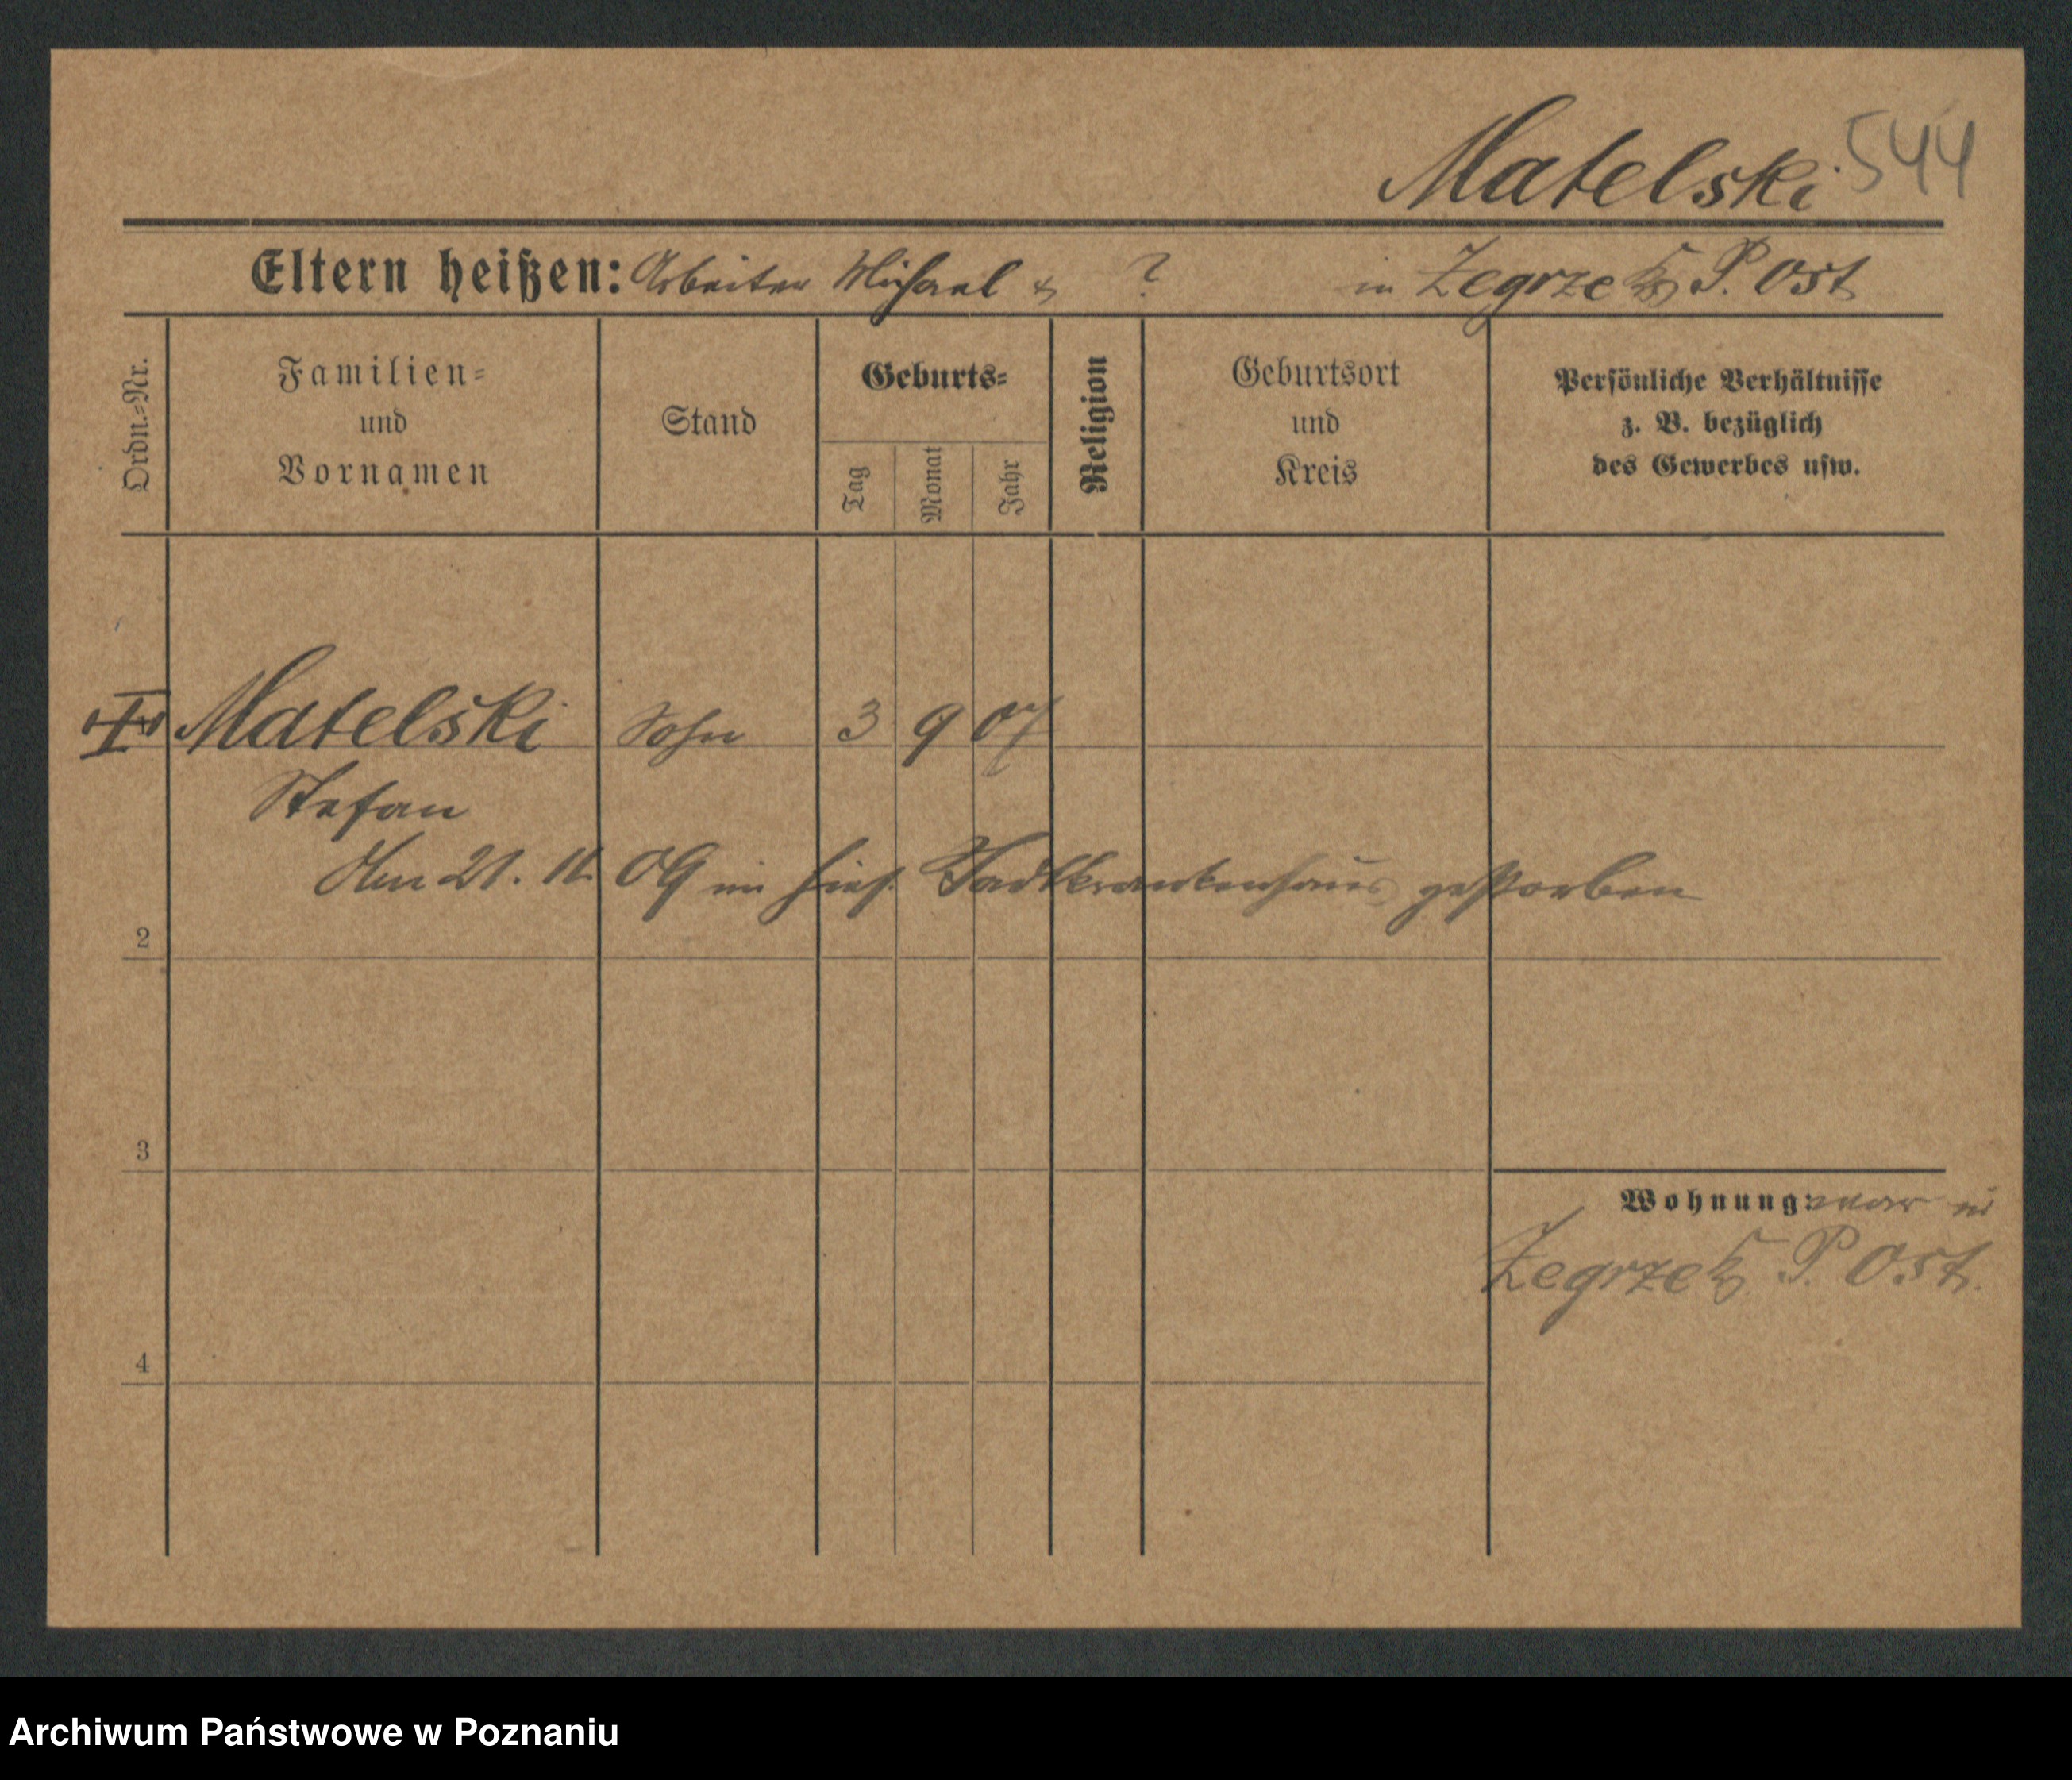 Matelski 544
Eltern heißen: Arbeiter Michael & ? in Zegrze Kr. P. Ost
Ordn.=Nr.
Familien=
und
Vornamen
Stand
Geburts=
Tag
Monat
Jahr
Religion
Geburtsort
und
Kreis
Persönliche Verhältnisse
z. B. bezüglich
des Gewerbes usw.
Matelski Sohn 3 9 07
Stefan
Am 21. 11. 09 im hies. Stadtkrankenhaus gestorben
2
3
Wohnung: war in
Zegrze Kr. P. Ost.
4
Archiwum Państwowe w Poznaniu